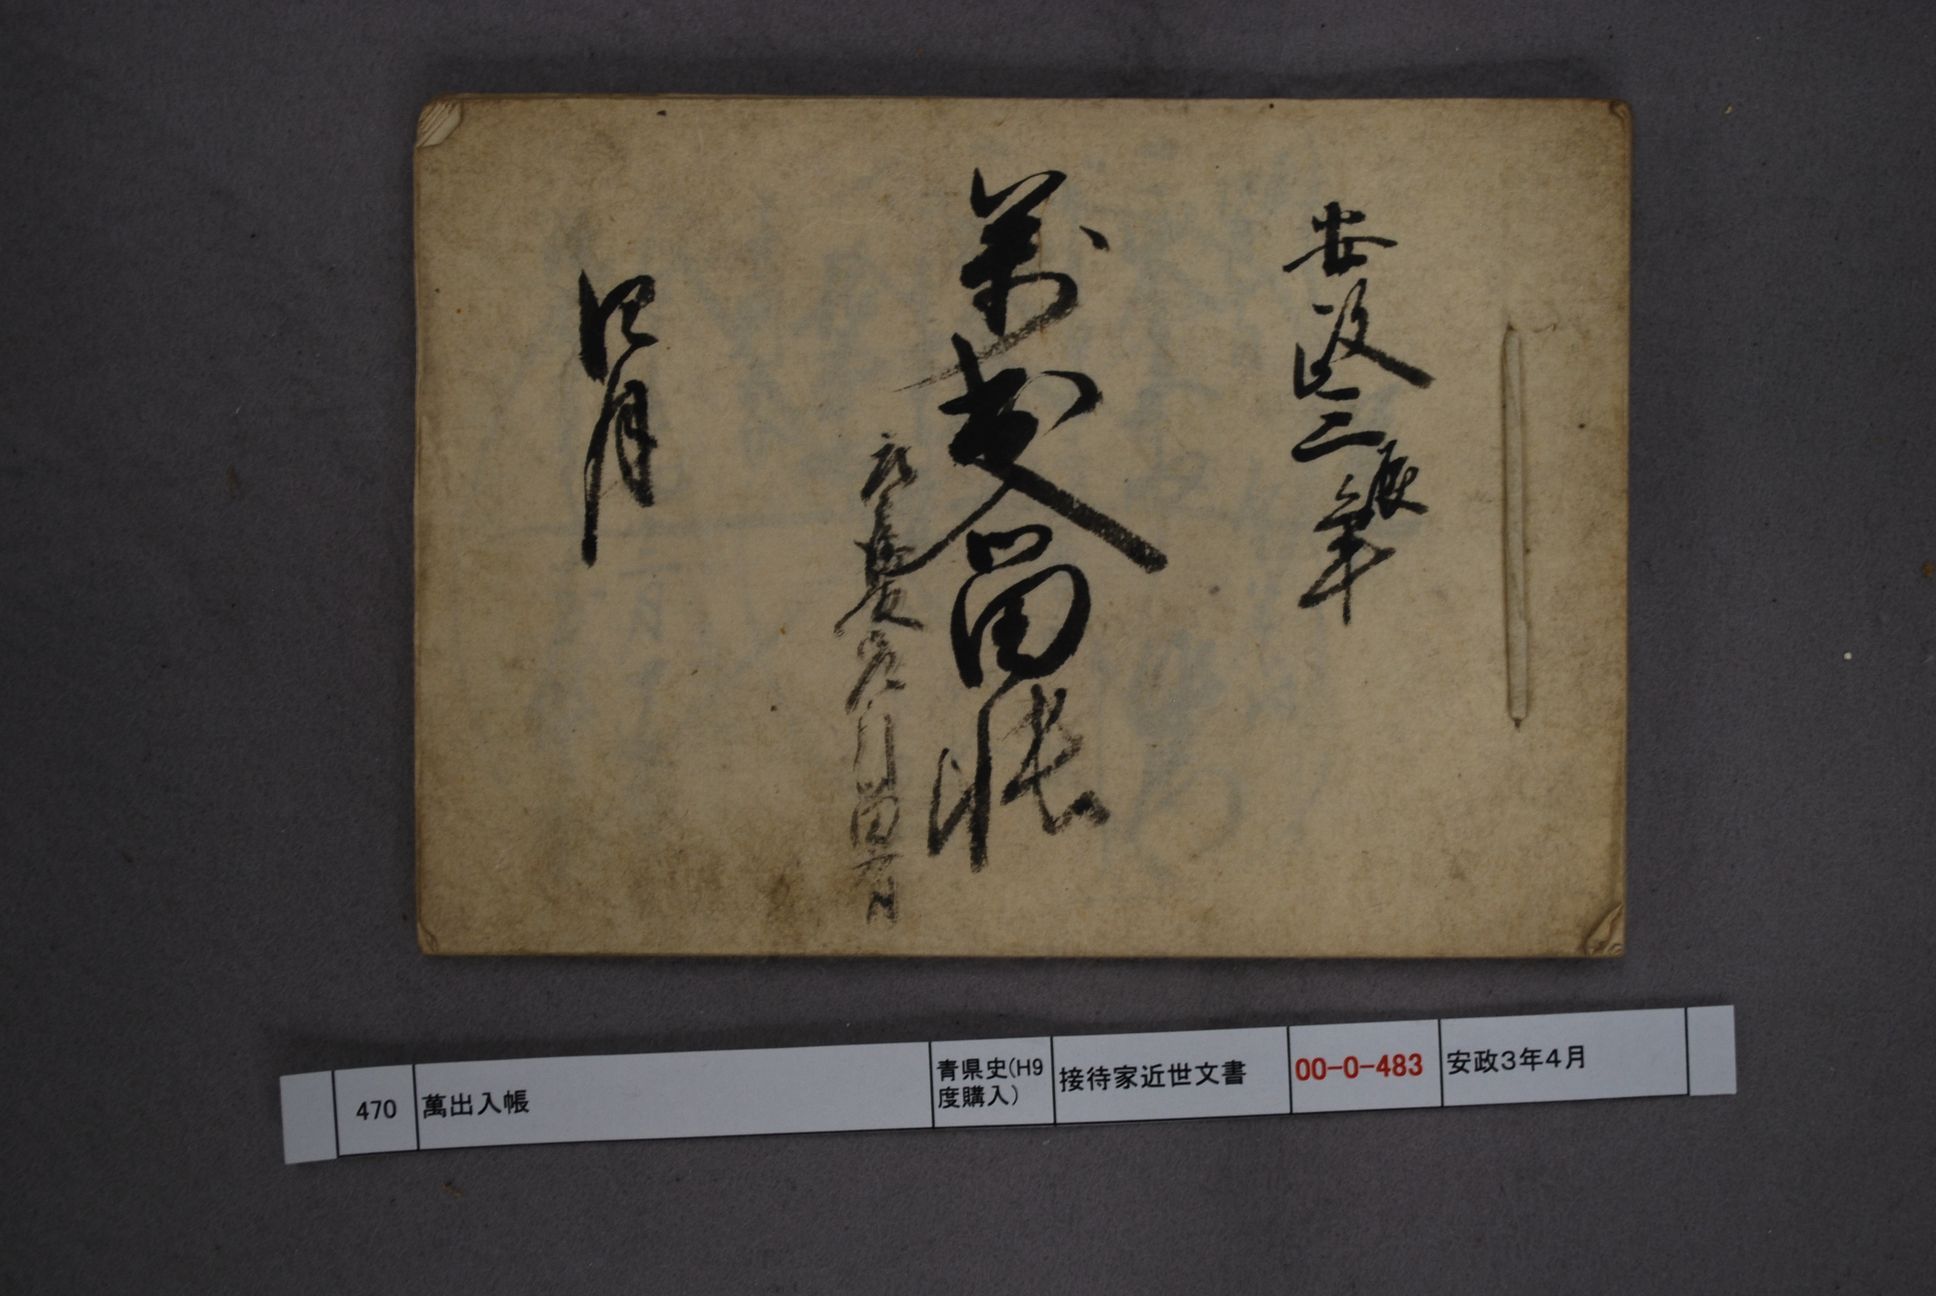 安政三辰年
萬出入留帳
四月
470 萬出入帳 青県史(H9度購入) 接待家近世文書 00-0-483 安政3年4月